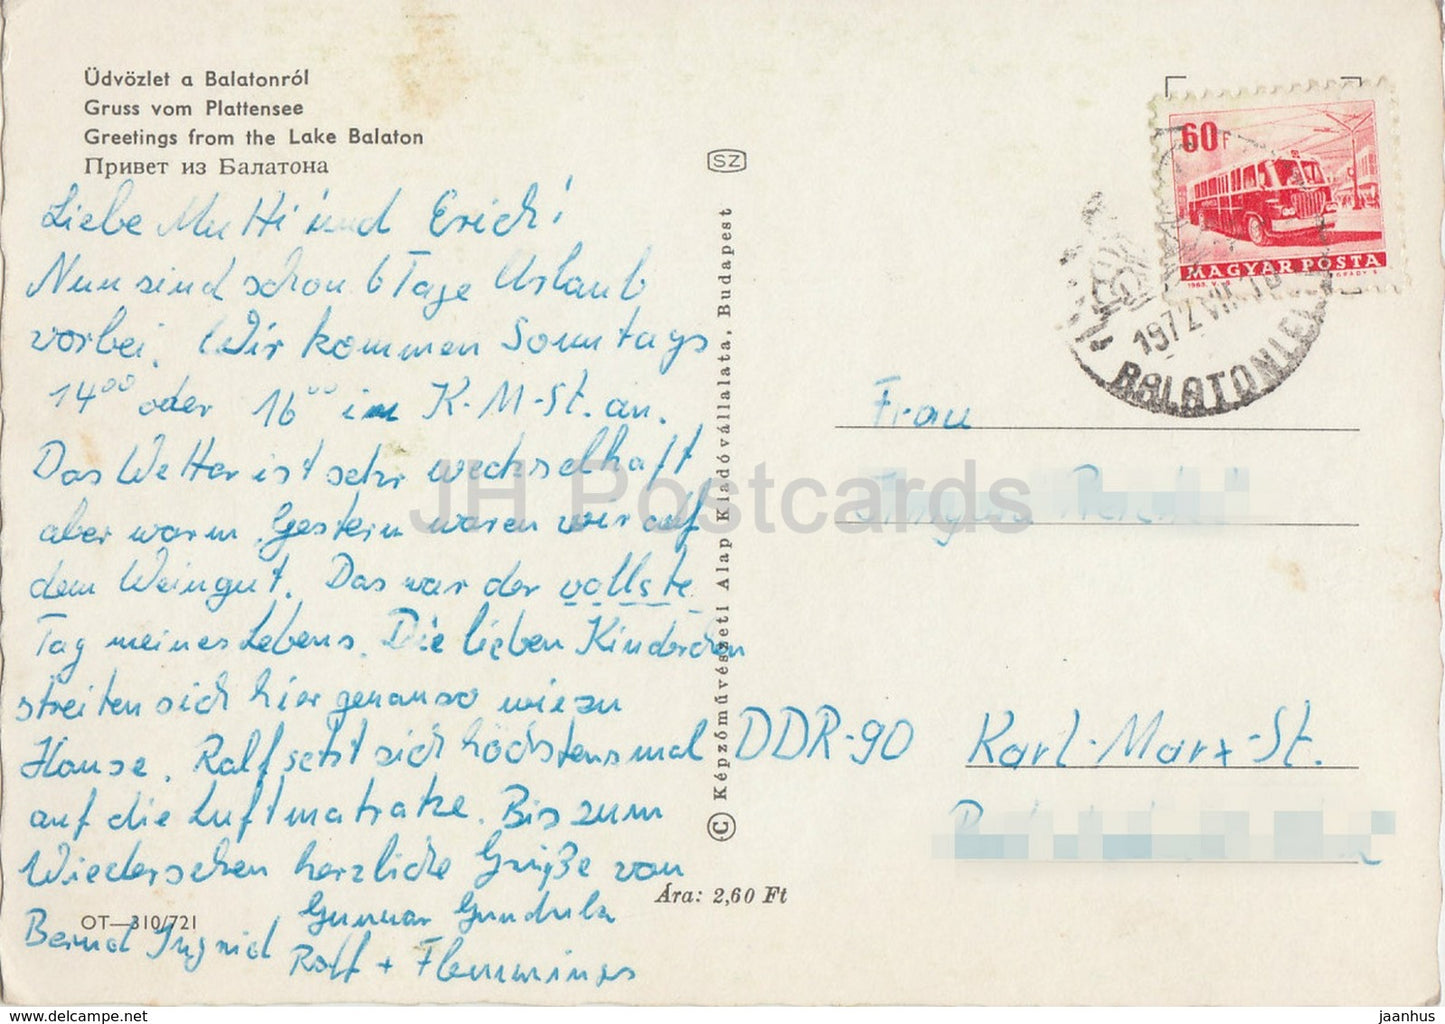 Üdvözlet a Balatonról
Gruss vom Plattensee
Greetings from the Lake Balaton
Привет из Балатона
Liebe Mutti und Erich!
Nun sind schon 6 Tage Urlaub
vorbei. Wir kommen Sonntags
14⁰⁰ oder 16⁰⁰ in K.-M-St. an.
Das Wetter ist sehr wechselhaft
aber warm. Gestern waren wir auf
dem Weingut. Das war der vollste
Tag meines Lebens. Die lieben Kinderchen
streiten sich hier genauso wie zu
Hause. Ralf setzt sich höchstens mal
auf die Luftmatratze. Bis zum
Wiedersehen herzliche Grüße von
Gunnar Gundula
Bernd Ingrid Ralf + Flemmings
OT—310/721
Ára: 2,60 Ft
SZ
© Képzőművészeti Alap Kiadóvállalata, Budapest
60 f
MAGYAR POSTA
1963. V. G.
GRÁDY S.
1972 VII
BALATONLEL
Frau
DDR-90 Karl-Marx-St.
JH Postcards
www.delcampe.net
jaanhus